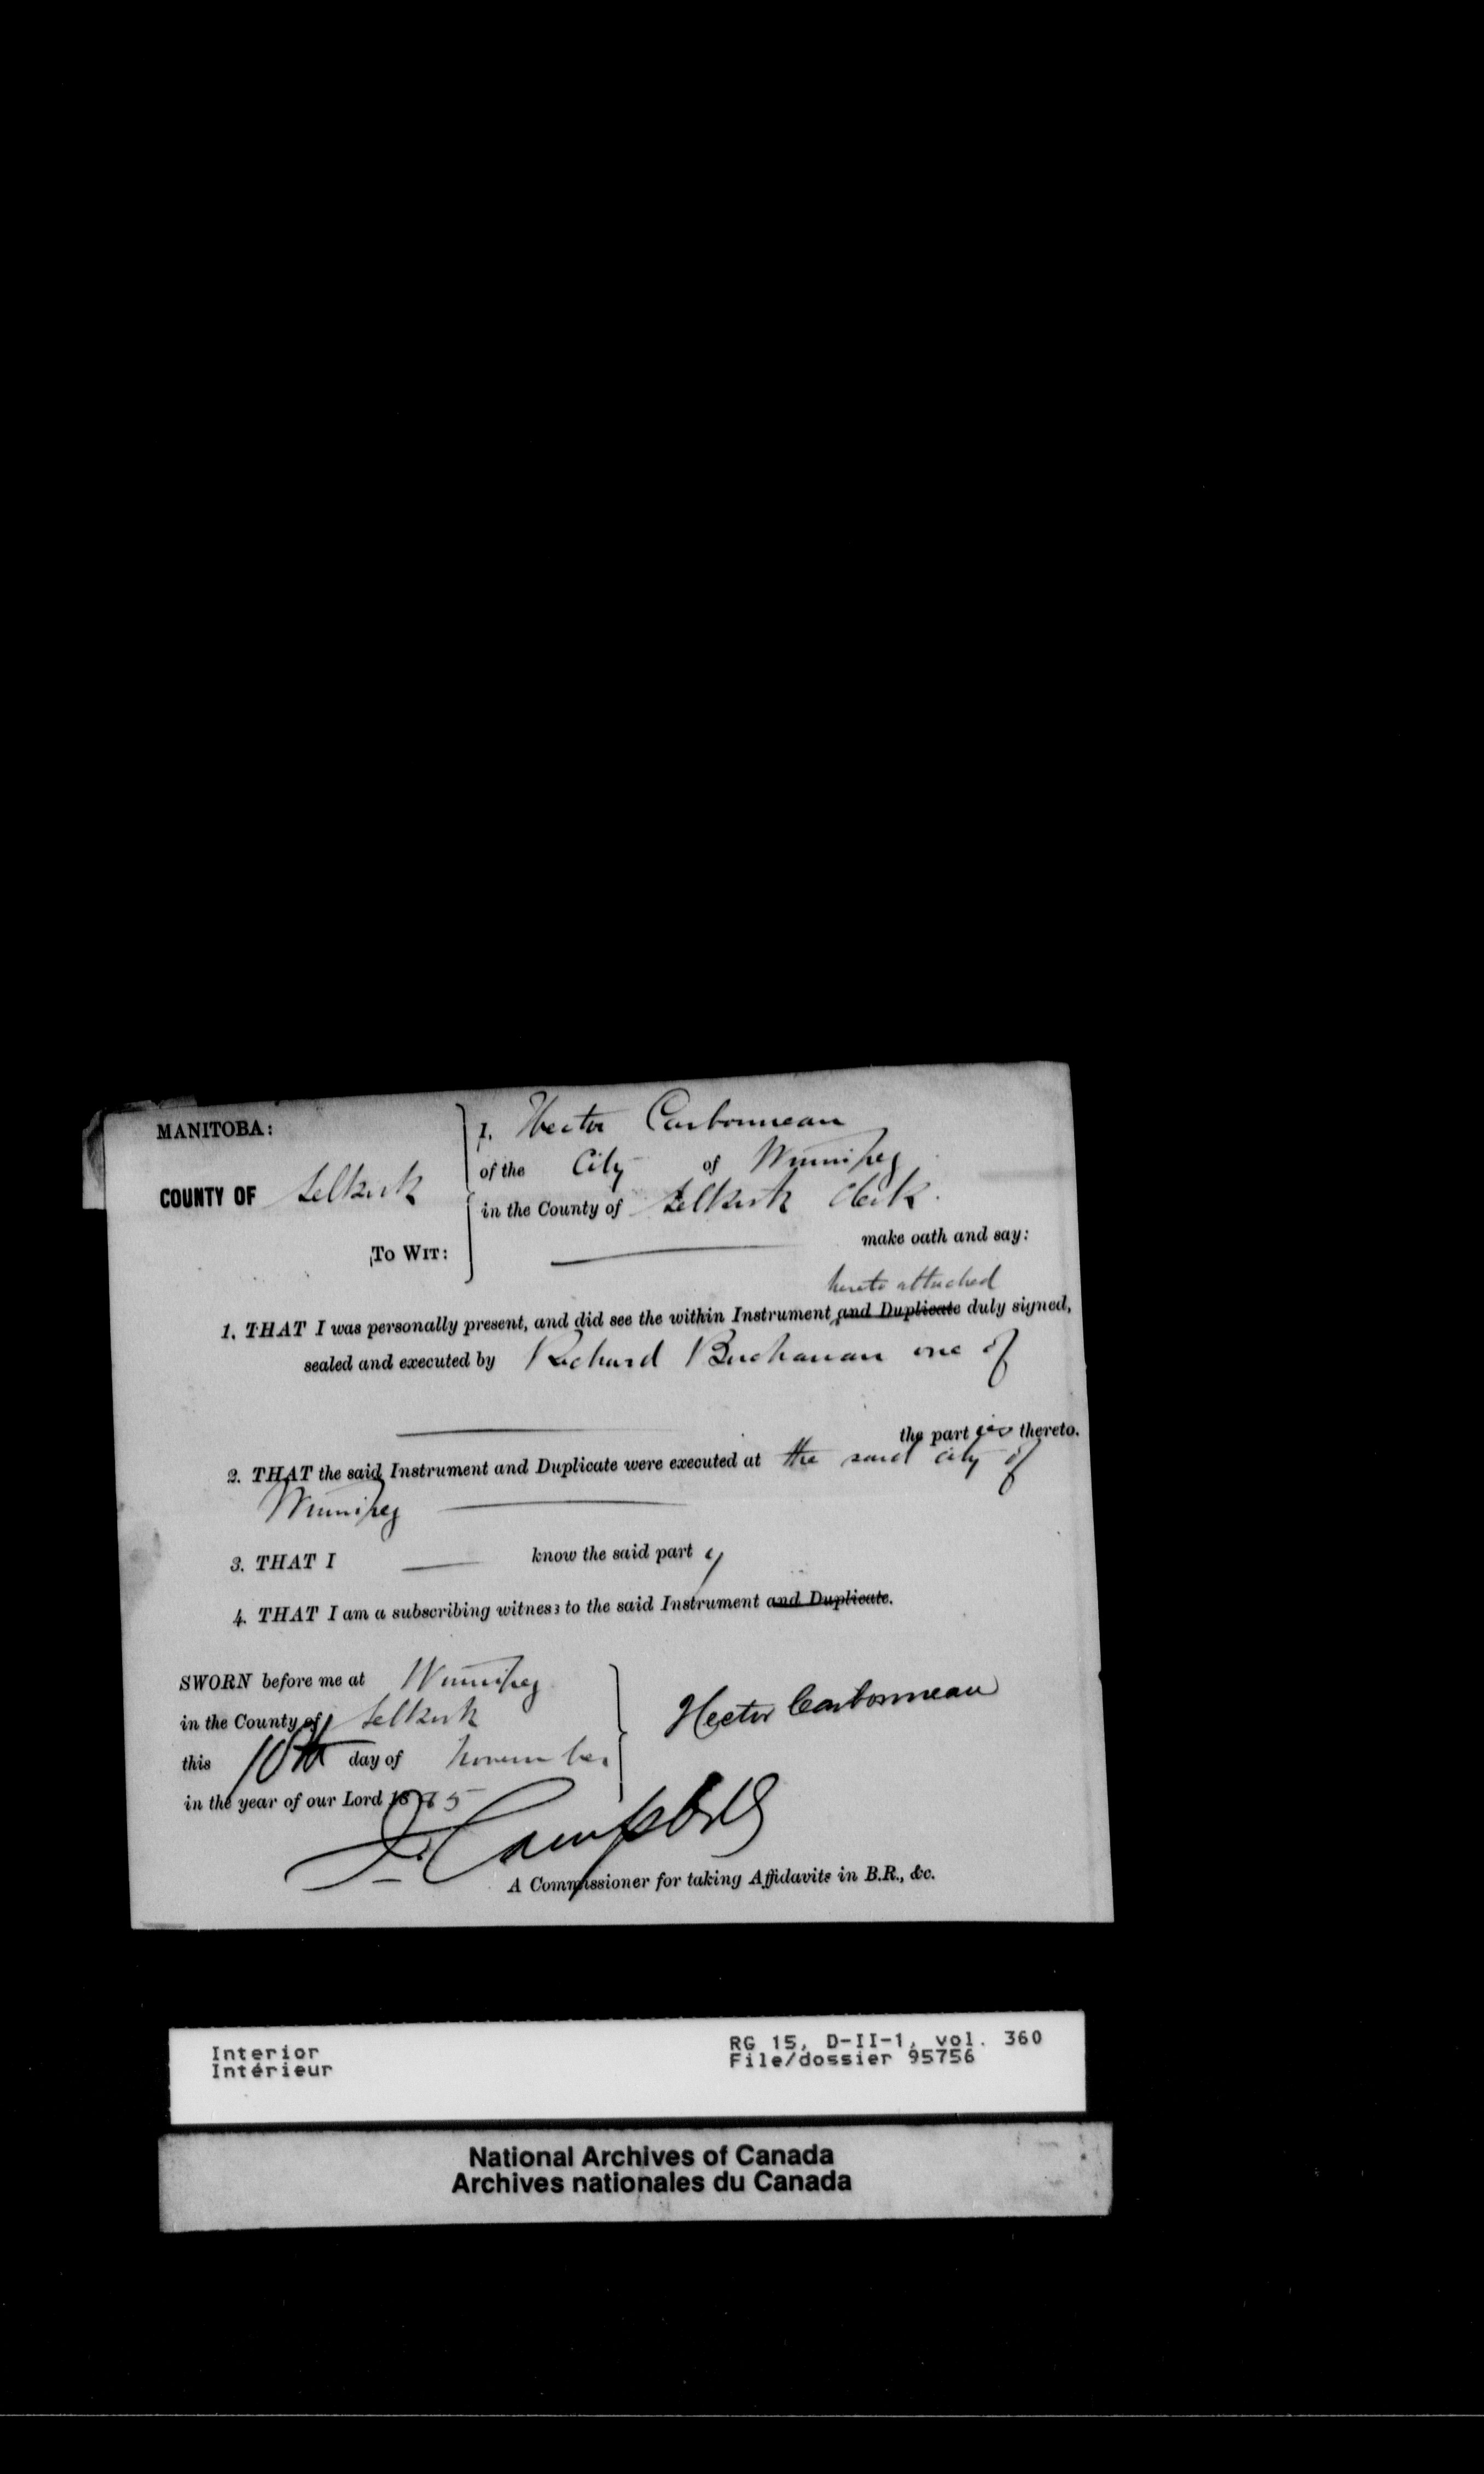 MANITOBA:
COUNTY OF Selkirk
To Wit:
I, Hector Carbonneau
of the City of Winnipeg
in the County of Selkirk Clerk.
make oath and say:
hereto attached
1. THAT I was personally present, and did see the within Instrument and Duplicate duly signed,
sealed and executed by Richard Buchanan one of
the part ies thereto.
2. THAT the said Instrument and Duplicate were executed at the said city of
Winnipeg
3. THAT I know the said part y
4. THAT I am a subscribing witness to the said Instrument and Duplicate.
SWORN before me at Winnipeg
in the County of Selkirk
this 10th day of November
in the year of our Lord 18 5
Hector Carbonneau
Campbell
A Commissioner for taking Affidavits in B.R., &c.
Interior
Intérieur
RG 15, D-II-1, vol. 360
File/dossier 95756
National Archives of Canada
Archives nationales du Canada